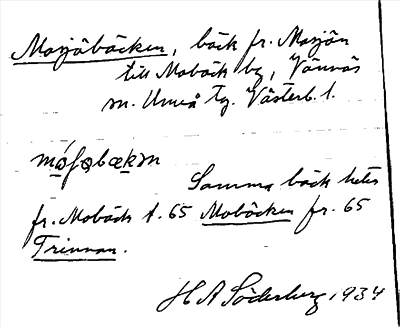 Mosjöbäcken, bäck fr. Mosjön
till Mobäck by, Vännäs
sn. Umeå Tg. Västerb. l.
Samma bäck heter
fr. Mobäck t. 65 Mobäcken fr. 65
Trinnan.
H A Söderberg 1934